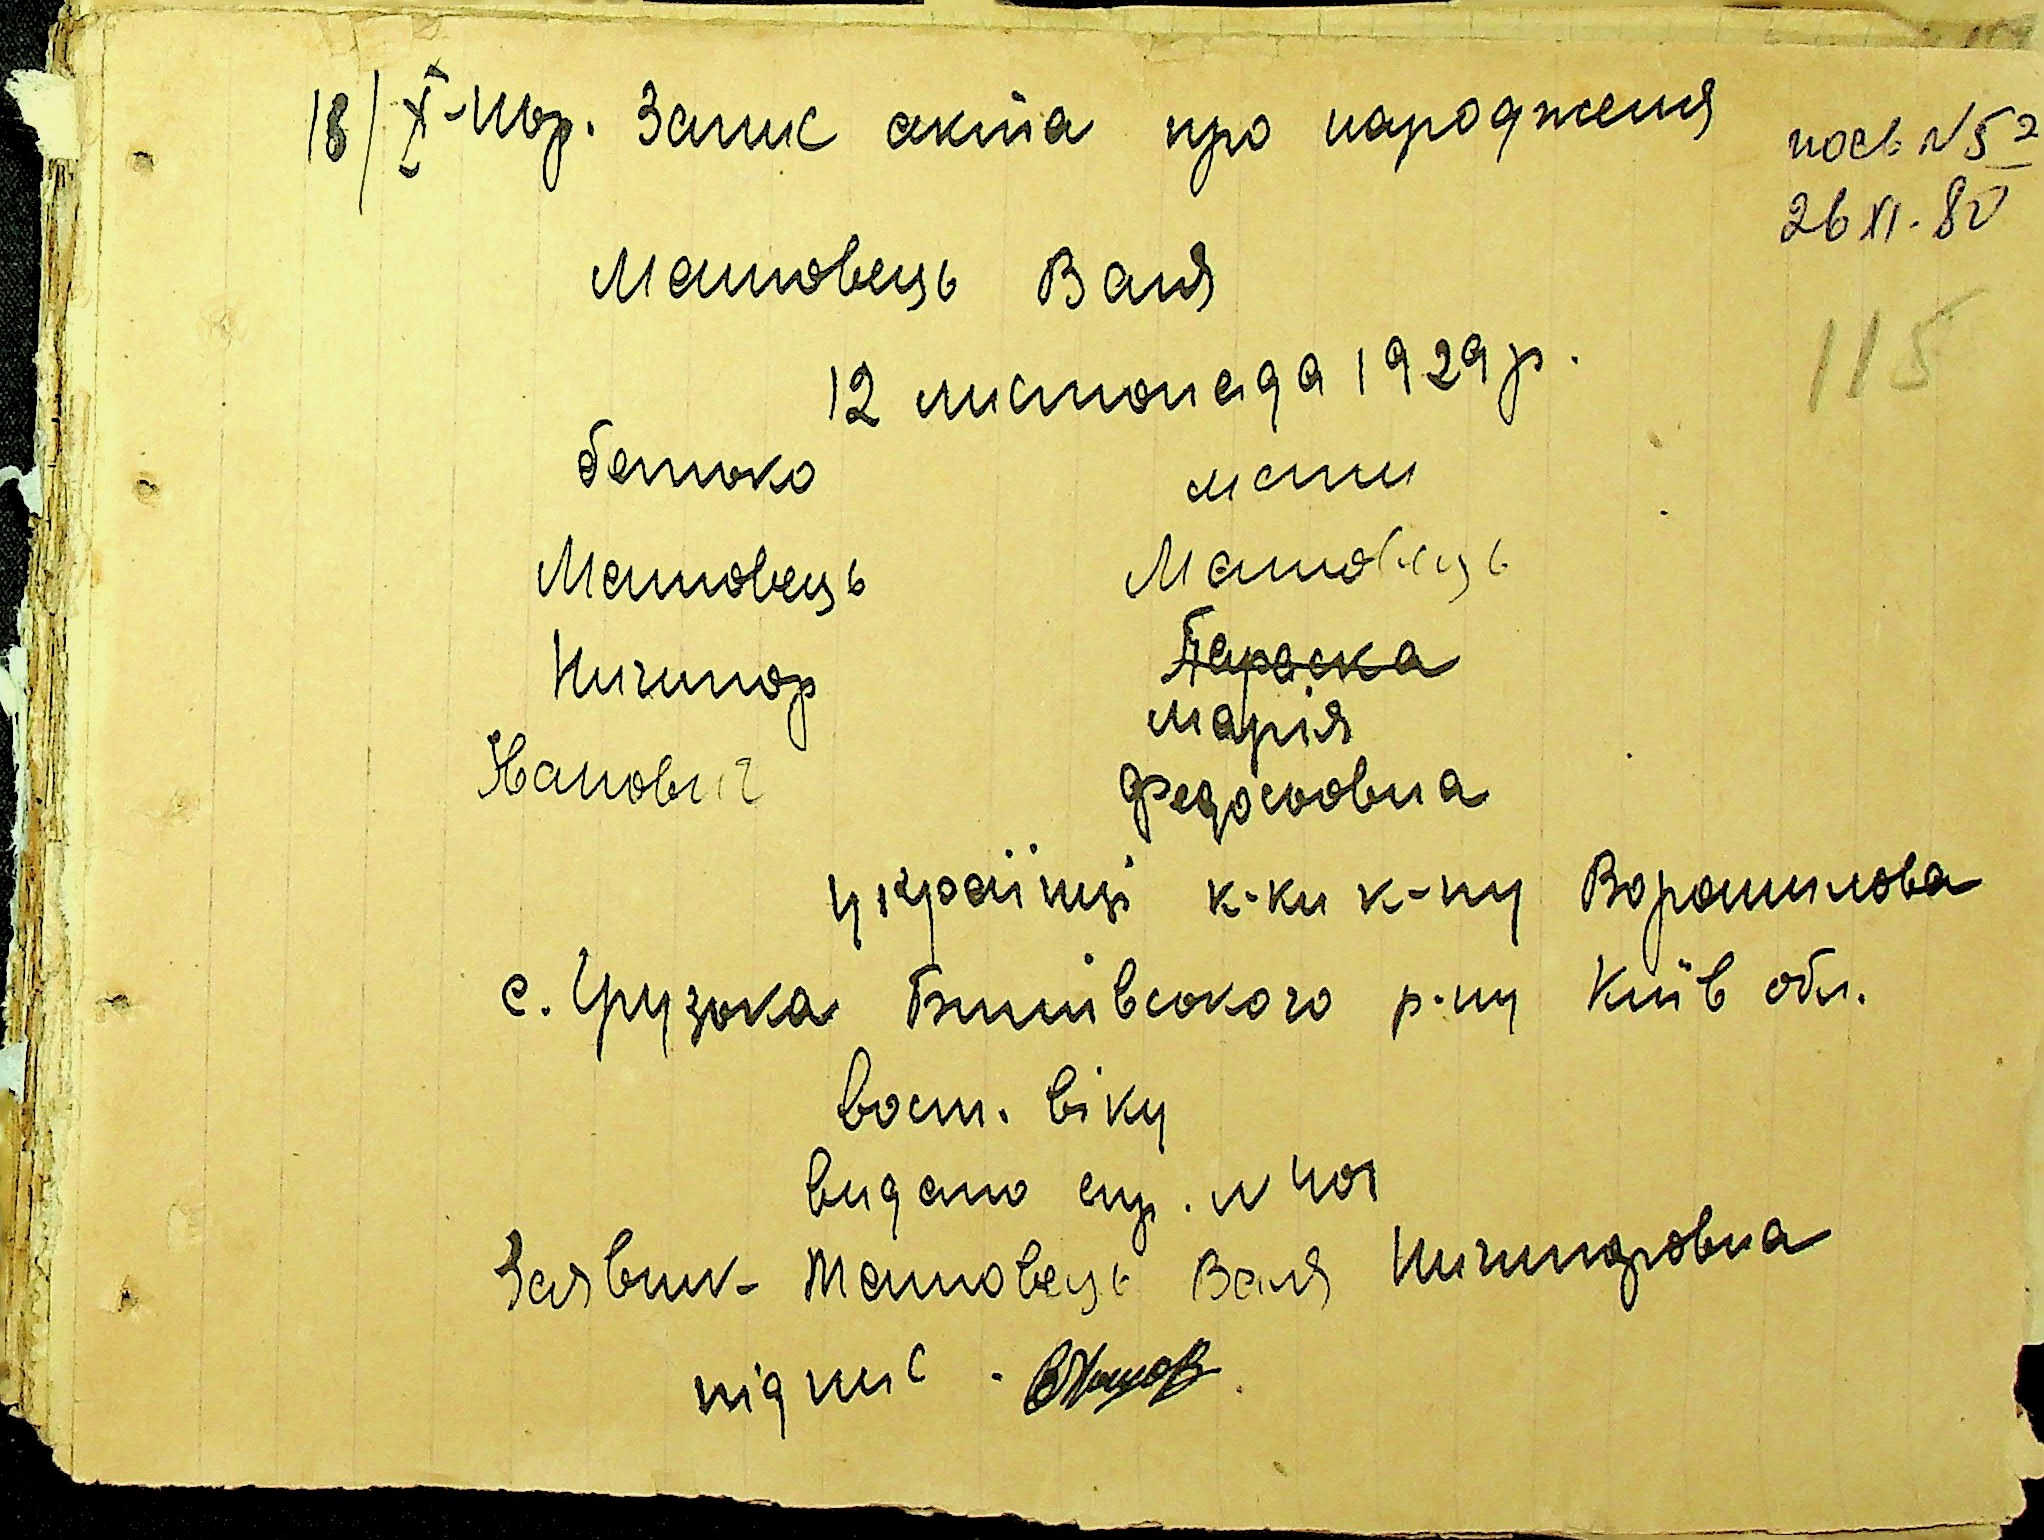 18/X-44р. Запис акта про народження
посв №52
26 XI. 80
Мановець Валя
115
12 листопада 1929 р.
батько мати
Мановець Мановець
Ничипор Параска
Марія
Йванович Федосовна
українці к-ки к-пу Ворошилова
с. Грузька Бишівського р-ну Київ обл.
вост. віку
видано сир. №401
Заявник - Мановець Валя Ничипоровна
підпис -